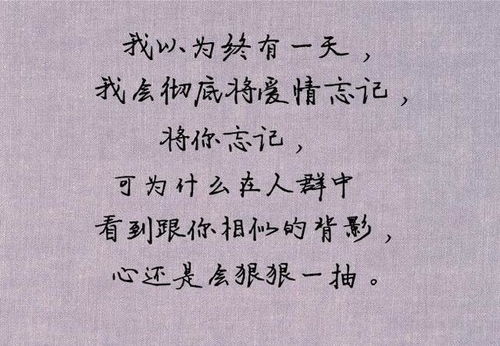 我以为终有一天，
我会彻底将爱情忘记，
将你忘记，
可为什么在人群中
看到跟你相似的背影，
心还是会狠狠一抽。